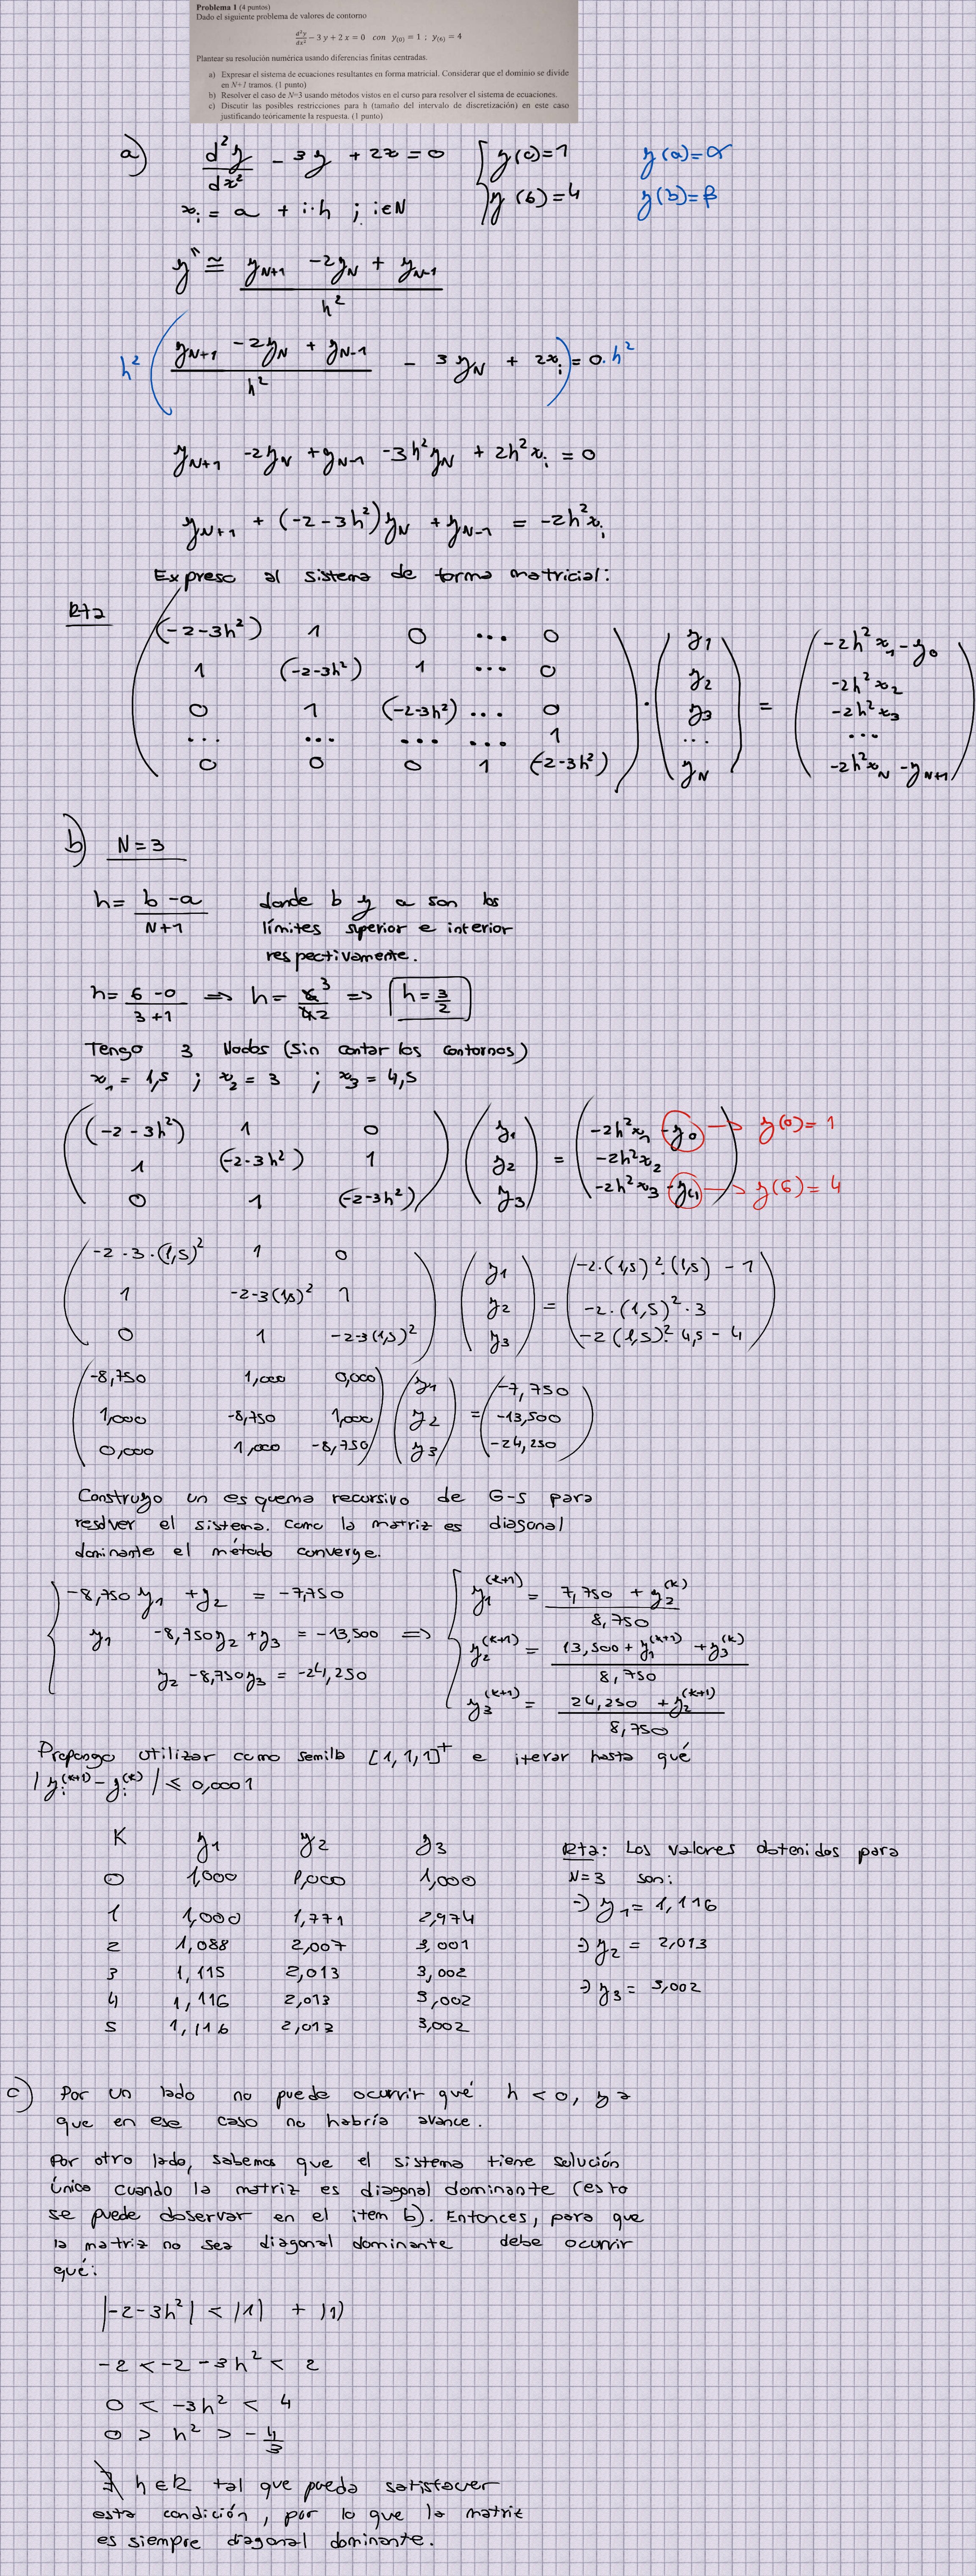 Problema 1 (4 puntos)
Dado el siguiente problema de valores de contorno
d²y/dx² − 3 y + 2 x = 0 con y(0) = 1 ; y(6) = 4
Plantear su resolución numérica usando diferencias finitas centradas.
a) Expresar el sistema de ecuaciones resultantes en forma matricial. Considerar que el dominio se divide
en N+1 tramos. (1 punto)
b) Resolver el caso de N=3 usando métodos vistos en el curso para resolver el sistema de ecuaciones.
c) Discutir las posibles restricciones para h (tamaño del intervalo de discretización) en este caso
justificando teóricamente la respuesta. (1 punto)
a) d²y/dx² - 3y + 2x = 0 { y(0)=1 y(a)=α
x_i = a + i·h ; i∈N y(6)=4 y(b)=β
y'' ≅ (y_{N+1} - 2y_N + y_{N-1})/h²
h² ( (y_{N+1} - 2y_N + y_{N-1})/h² - 3y_N + 2x_i ) = 0·h²
y_{N+1} - 2y_N + y_{N-1} - 3h²y_N + 2h²x_i = 0
y_{N+1} + (-2-3h²)y_N + y_{N-1} = -2h²x_i
Expreso al sistema de forma matricial:
Rta
(-2-3h²) 1 0 ... 0 y_1 -2h²x_1 - y_0
1 (-2-3h²) 1 ... 0 y_2 -2h²x_2
0 1 (-2-3h²) ... 0 · y_3 = -2h²x_3
... ... ... ... 1 ... ...
0 0 0 1 (-2-3h²) y_N -2h²x_N - y_{N+1}
b) N=3
h = (b-a)/(N+1) donde b y a son los
límites superior e inferior
respectivamente.
h = (6-0)/(3+1) ⇒ h = 6³/4 2 ⇒ h = 3/2
Tengo 3 Nodos (sin contar los contornos)
x_1 = 1,5 ; x_2 = 3 ; x_3 = 4,5
(-2-3h²) 1 0 y_1 -2h²x_1 - y_0 → y(0)=1
1 (-2-3h²) 1 y_2 = -2h²x_2
0 1 (-2-3h²) y_3 -2h²x_3 - y_4 → y(6)=4
-2-3·(1,5)² 1 0 y_1 -2·(1,5)²·(1,5) - 1
1 -2-3(1,5)² 1 y_2 = -2·(1,5)²·3
0 1 -2-3(1,5)² y_3 -2(1,5)²·4,5 - 4
-8,750 1,000 0,000 y_1 -7,750
1,000 -8,750 1,000 y_2 = -13,500
0,000 1,000 -8,750 y_3 -24,250
Construyo un esquema recursivo de G-S para
resolver el sistema. Como la matriz es diagonal
dominante el método converge.
-8,750 y_1 + y_2 = -7,750 y_1^(k+1) = (7,750 + y_2^(k))/8,750
y_1 -8,750y_2 + y_3 = -13,500 ⇒ y_2^(k+1) = (13,500 + y_1^(k+1) + y_3^(k))/8,750
y_2 -8,750y_3 = -24,250 y_3^(k+1) = (24,250 + y_2^(k+1))/8,750
Propongo utilizar como semilla [1,1,1]^t e iterar hasta qué
|y_i^(k+1) - y_i^(k)| ≤ 0,0001
K y_1 y_2 y_3
0 1,000 1,000 1,000
1 1,000 1,771 2,974
2 1,088 2,007 3,001
3 1,115 2,013 3,002
4 1,116 2,013 3,002
5 1,116 2,013 3,002
Rta: Los valores obtenidos para
N=3 son:
→ y_1 = 1,116
→ y_2 = 2,013
→ y_3 = 3,002
c) Por un lado no puede ocurrir qué h < 0, ya
que en ese caso no habría avance.
Por otro lado, sabemos que el sistema tiene solución
única cuando la matriz es diagonal dominante (esto
se puede observar en el item b). Entonces, para que
la matriz no sea diagonal dominante debe ocurrir
qué:
|-2-3h²| < |1| + |1|
-2 < -2-3h² < 2
0 < -3h² < 4
0 > h² > -4/3
∄ h∈R tal que pueda satisfacer
esta condición, por lo que la matriz
es siempre diagonal dominante.